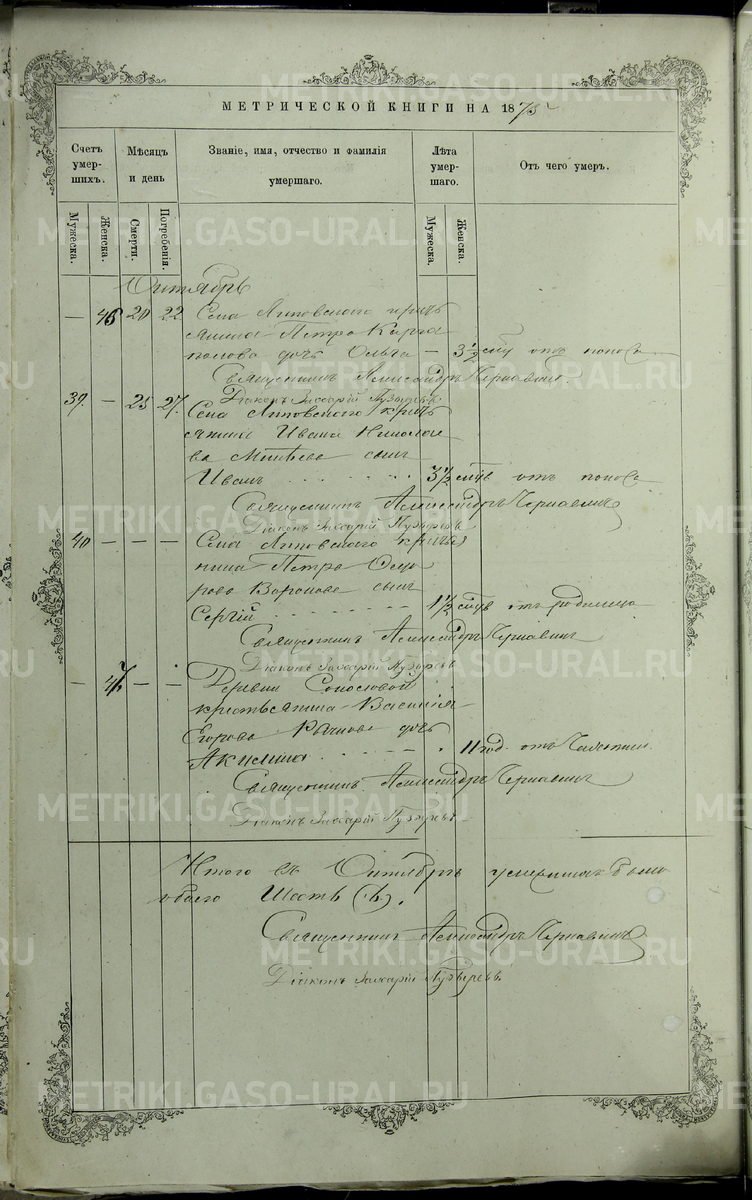 МЕТРИЧЕСКОЙ КНИГИ НА 1873
Счетъ умершихъ.
Мѣсяцъ и день
Званіе, имя, отчество и фамилія умершаго.
Лѣта умершаго.
Отъ чего умеръ.
Мужеска.
Женска.
Смерти.
Погребенія.
Мужеска.
Женска.
Октябрь
— 46 20 22 Села Липовского кресть
янина Петра Карга
полова дочь Ольга — 3 1/2 отъ поноса
Священникъ Александръ Чернавинъ
Діаконъ Захарій Пузыревъ
39. — 25 27. Села Липовского кресть
янина Ивана Николае
ва сынъ
Иванъ 3 1/2 отъ поноса
Священникъ Александръ Чернавинъ
Діаконъ Захарій Пузыревъ
40 — — — Села Липовского кресть
янина Петра
Воронова сынъ
Сергій 1 1/2 отъ родимца
Священникъ Александръ Чернавинъ
Діаконъ Захарій Пузыревъ
— 47 — — Деревни
крестьянина Василія
Егорова дочь
Акилина 11 год. отъ
Священникъ Александръ Чернавинъ
Діаконъ Захарій Пузыревъ
Итого въ Октябрѣ умершихъ было
обоего Шесть (6).
Священникъ Александръ Чернавинъ
Діаконъ Захарій Пузыревъ.
METRIKI.GASO-URAL.RU